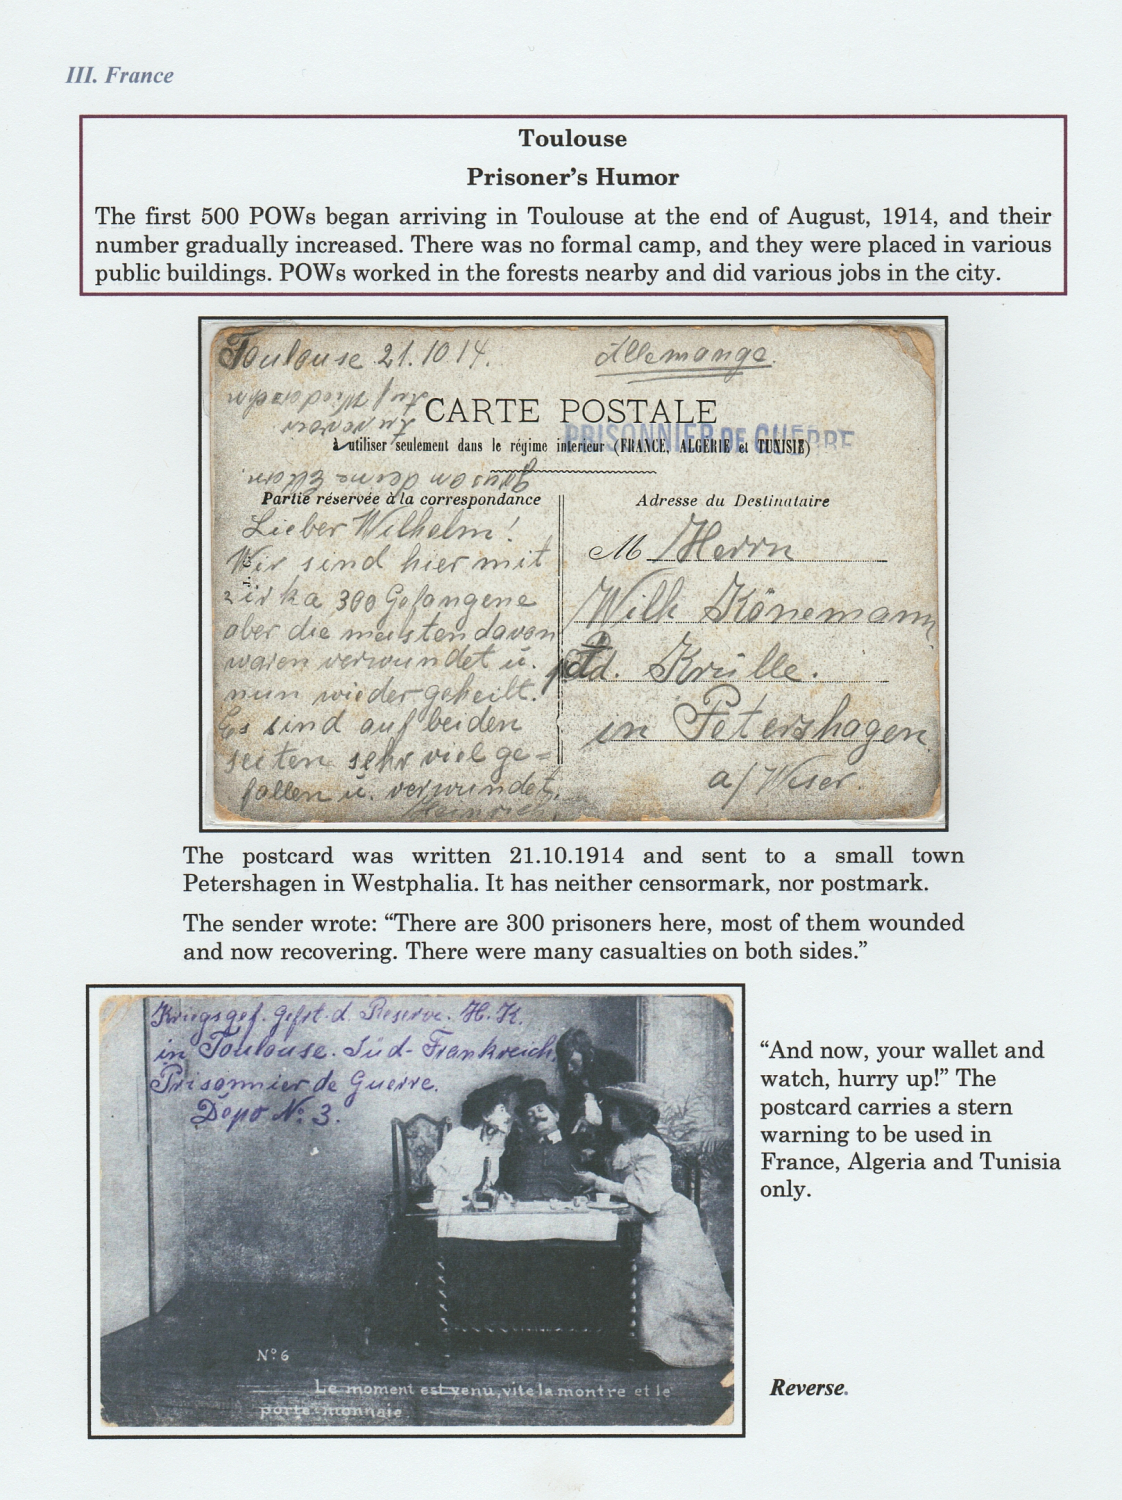 III. France
Toulouse
Prisoner’s Humor
The first 500 POWs began arriving in Toulouse at the end of August, 1914, and their
number gradually increased. There was no formal camp, and they were placed in various
public buildings. POWs worked in the forests nearby and did various jobs in the city.
Toulouse 21.10 14.
Allemange.
Auf Wiedersehn
Au revoir
CARTE POSTALE
PRISONNIER DE GUERRE
à utiliser seulement dans le régime intérieur (FRANCE, ALGERIE et TUNISIE)
Partie réservée à la correspondance
Adresse du Destinataire
Lieber Wilhelm!
Wir sind hier mit
zirka 300 Gefangene
aber die meisten davon
waren verwundet u.
nun wieder geheilt.
Es sind auf beiden
seiten sehr viel ge=
fallen u. verwundet.
Heinrich.
M Herrn
Wilh Könemann
Krülle.
in Petershagen
a/ Weser.
The postcard was written 21.10.1914 and sent to a small town
Petershagen in Westphalia. It has neither censormark, nor postmark.
The sender wrote: “There are 300 prisoners here, most of them wounded
and now recovering. There were many casualties on both sides.”
Kriegsgef. Gefrt. d. Reserve. H. K.
in Toulouse. Süd-Frankreich
Prisonnier de Guerre.
Depo No. 3.
No. 6
Le moment est venu, vite la montre et le
porte-monnaie
“And now, your wallet and
watch, hurry up!” The
postcard carries a stern
warning to be used in
France, Algeria and Tunisia
only.
Reverse.